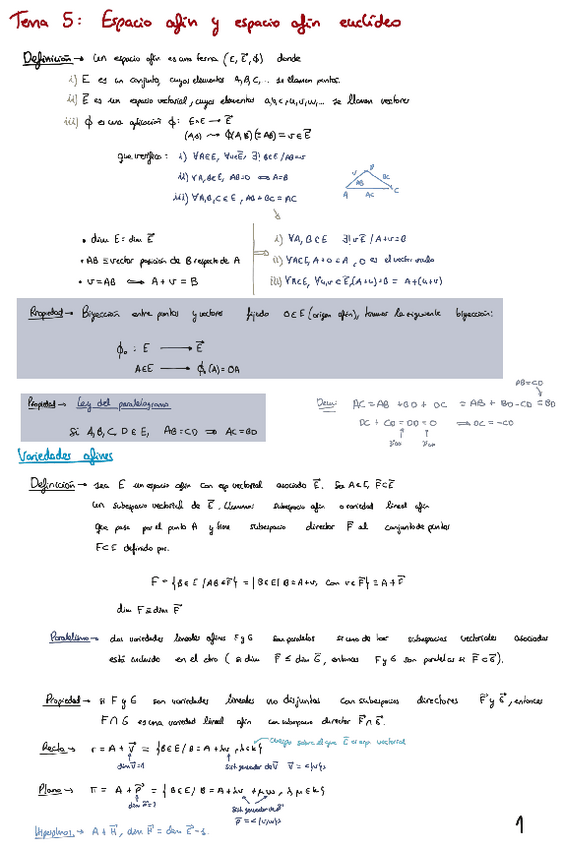 Tema 5: Espacio afín y espacio afín euclídeo
Definición → Un espacio afín es una terna (E, E⃗, ϕ) donde
i) E es un conjunto, cuyos elementos A, B, C, ... se llaman puntos.
ii) E⃗ es un espacio vectorial, cuyos elementos a, b, c, u, v, w, ... se llaman vectores
iii) ϕ es una aplicación ϕ: E×E → E⃗
(A,B) ⇝ ϕ(A,B) (≡AB) = v ∈ E⃗
que verifica: i) ∀A∈E, ∀v∈E⃗, ∃! B∈E / AB=v
ii) ∀A,B∈E, AB=0 ⟺ A=B
iii) ∀A,B,C∈E, AB+BC=AC
v B
AB BC
A AC C
• dim E = dim E⃗
• AB ≡ vector posición de B respecto de A
• v=AB ⟺ A+v=B
i) ∀A,B∈E ∃! v∈E⃗ / A+v=B
ii) ∀A∈E, A+0=A, 0 es el vector nulo
iii) ∀A∈E, ∀u,v∈E⃗, (A+u)+v = A+(u+v)
Propiedad → Biyección entre puntos y vectores fijado O∈E (origen afín), tenemos la siguiente biyección:
ϕ₀: E → E⃗
A∈E → ϕ₀(A)=OA
Propiedad → Ley del paralelogramo
Si A,B,C,D∈E, AB=CD ⟹ AC=BD
AB=CD
Dem: AC = AB + BD + DC = AB + BD - CD = BD
DC + CD = DD = 0 ⟹ DC = -CD
Variedades afines
Definición → Sea E un espacio afín con esp vectorial asociado E⃗. Sea A∈E, F⃗⊂E⃗
un subespacio vectorial de E⃗. Llamamos subespacio afín o variedad lineal afín
que pasa por el punto A y tiene subespacio director F⃗ al conjunto de puntos
F⊂E definido por:
F = {B∈E / AB∈F⃗} = {B∈E / B=A+v, con v∈F⃗} ≡ A+F⃗
dim F ≡ dim F⃗
Paralelismo → dos variedades lineales afines F y G son paralelas si uno de los subespacios vectoriales asociados
está incluido en el otro (si dim F⃗ ≤ dim G⃗, entonces F y G son paralelas si F⃗⊂G⃗).
Propiedad → si F y G son variedades lineales no disjuntas con subespacios directores F⃗ y G⃗, entonces
F∩G es una variedad lineal afín con subespacio director F⃗∩G⃗.
Cuerpo sobre el que E⃗ es esp. vectorial
Recta → r = A+V⃗ = {B∈E / B=A+λv, λ∈k}
dim V⃗=1 Sist. generador de V⃗ V⃗=<{v}>
Plano → π = A+P⃗ = {B∈E / B=A+λv+μw, λ,μ∈k}
dim P⃗=2 Sist. generador de P⃗
P⃗=<{v,w}>
Hiperplano → A+H⃗, dim H⃗ = dim E⃗-1.
1